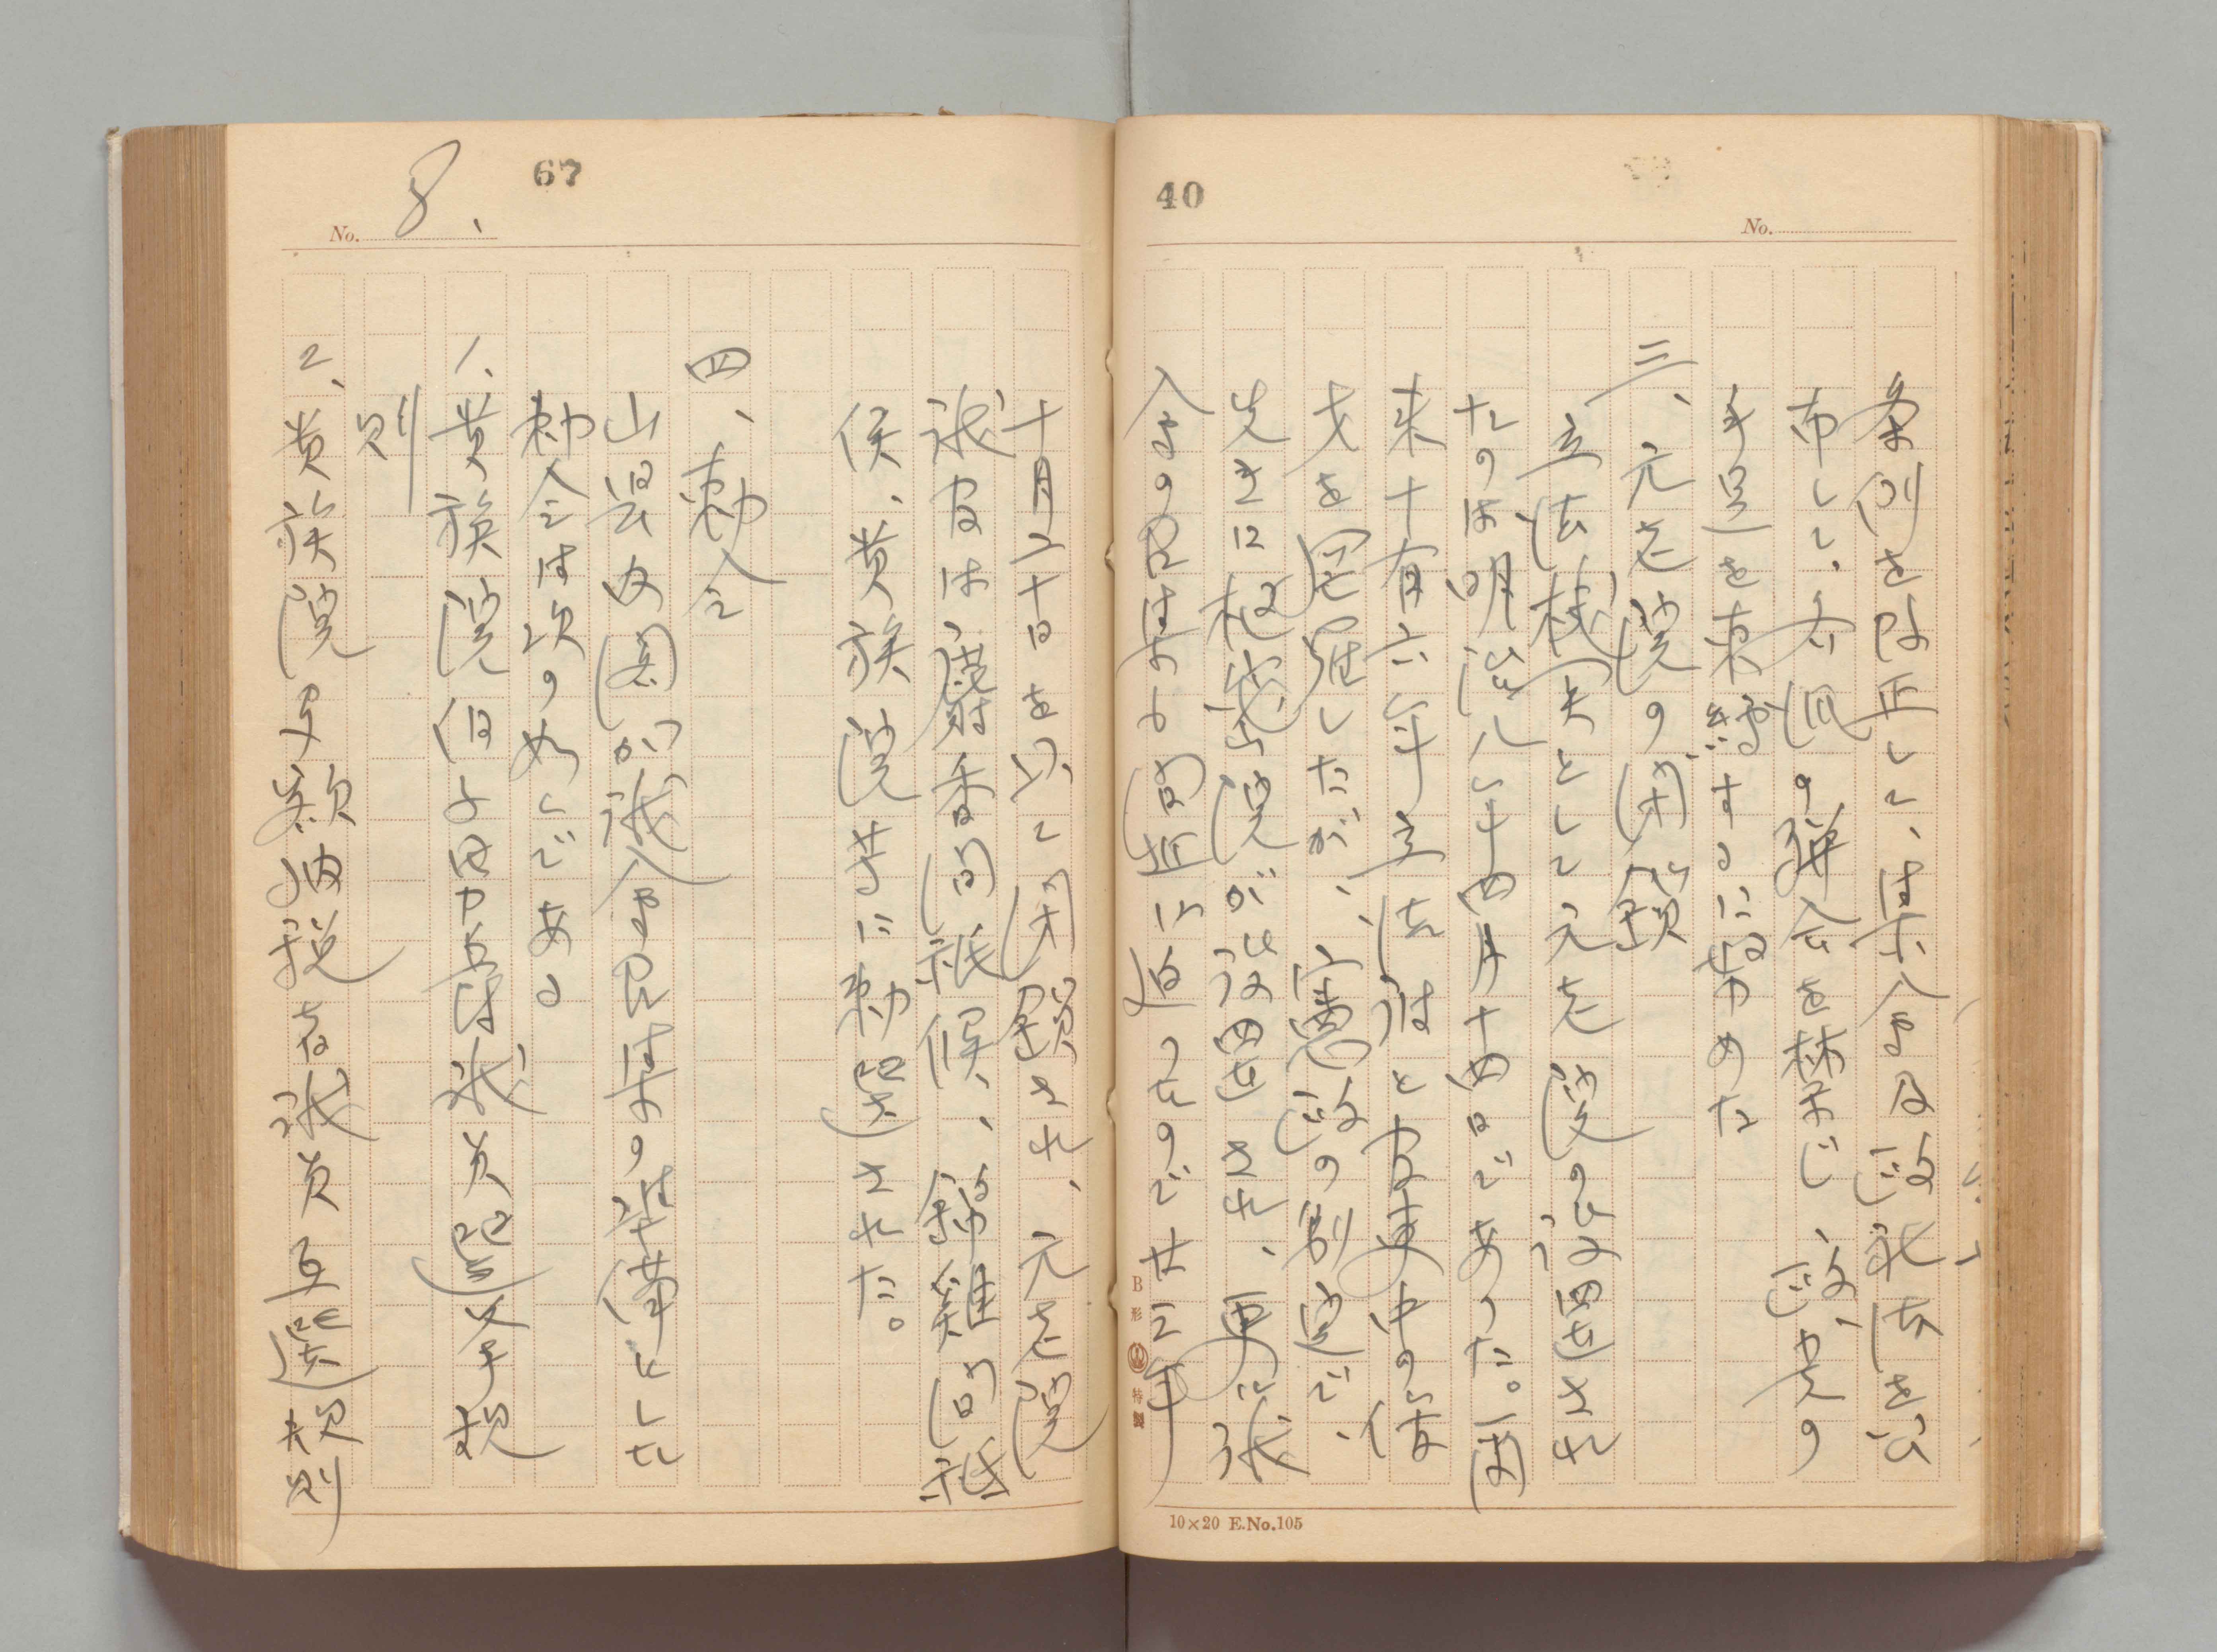 40
No.
条例を改正して、集会及政社法を公
布して、各派の聯合を禁じ、政党の
手足を束縛するに努めた
三、元老院の閉鎖
立法機関として元老院の設置され
たのは明治八年四月十四日であった。爾
来十有六年立法府と
先きに枢密院が設置され、更に議
会の召集も間近に迫ったので廿三年
B形 特製
10×20 E.No.105
67
No. 8、
十月二十日を以て閉鎖され、元老院
議官は麝香間祇候、錦鶏間祇
侯、貴族院等に勅選された。
四、勅令
山県内閣が議会召集の準備とした
勅令は次の如くである
1、貴族院伯子男爵議員選挙規
則
2、貴族院多額納税者議員互選規則